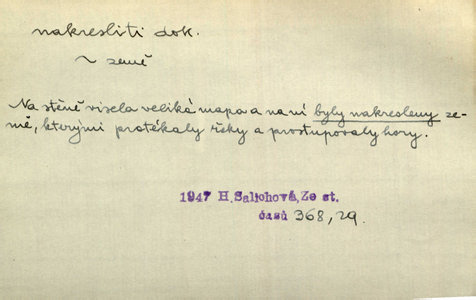 nakresliti dok.
~ země
Na stěně visela veliká mapa a na ní byly nakresleny ze-
mě, kterými protékaly řeky a prostupovaly hory.
1947 H. Salichová, Ze st.
časů 368, 29.